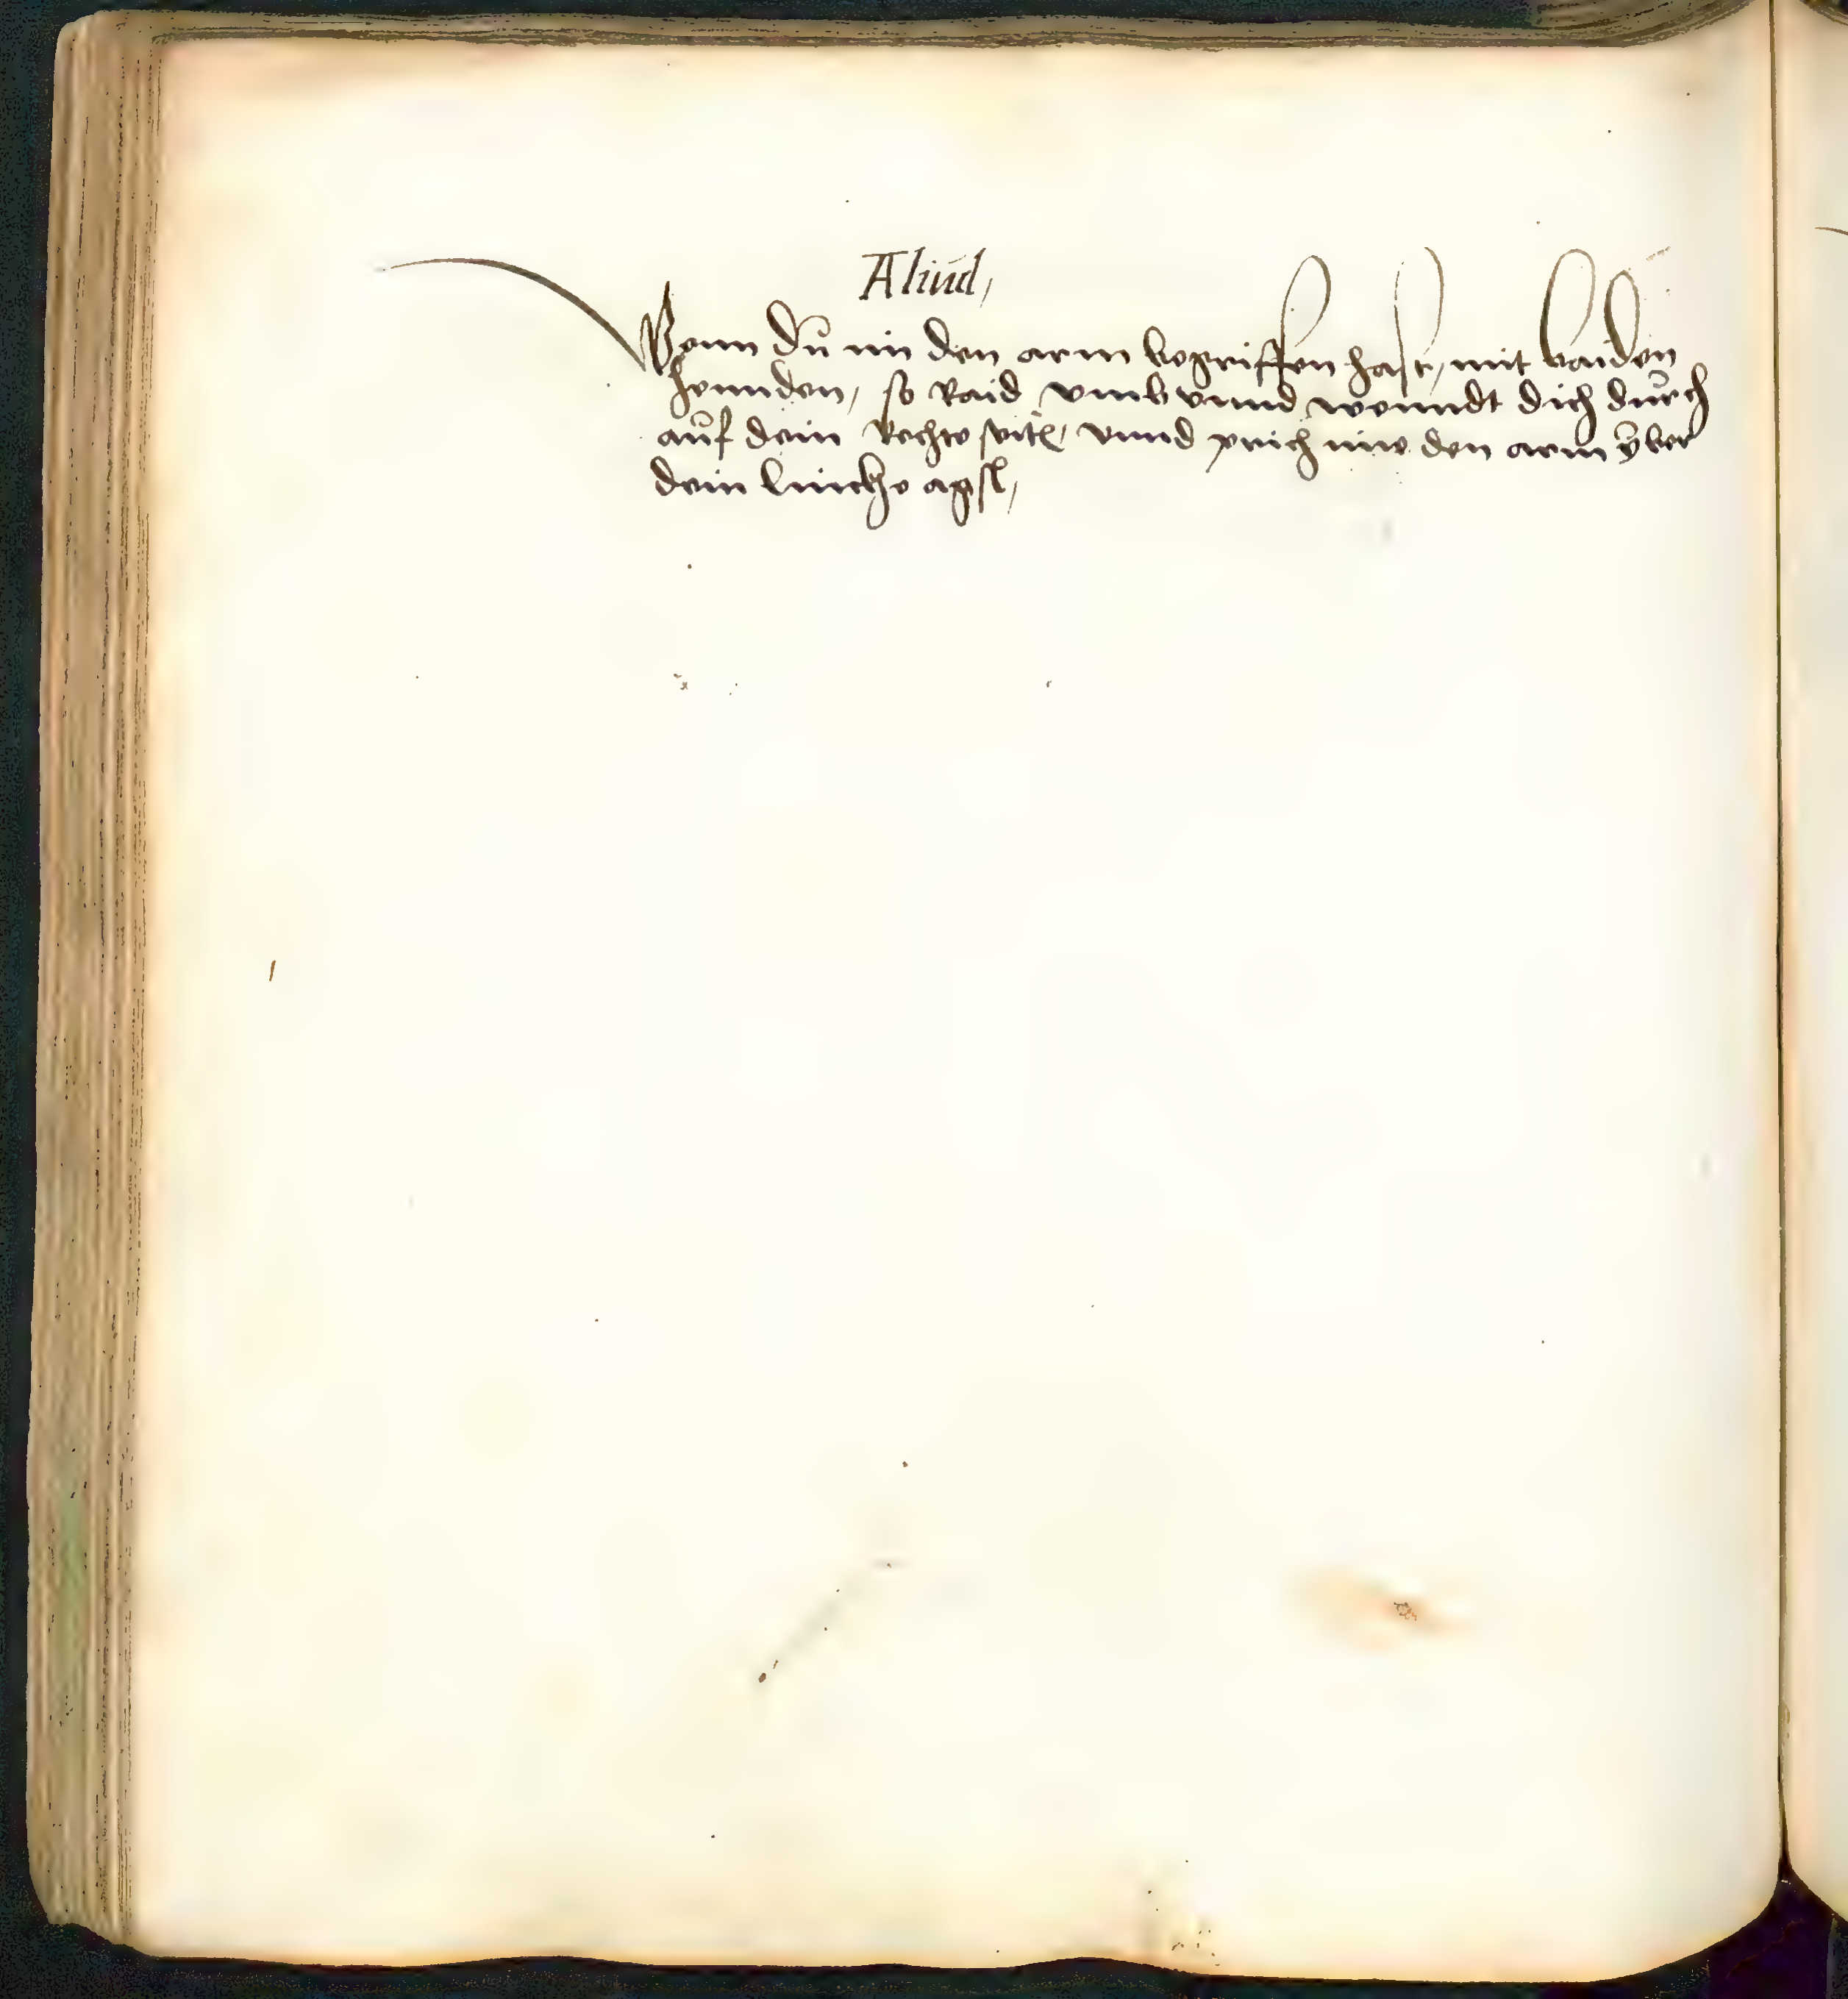 Aliud,
Wenn du im den arm begriffen hast, mit baiden
hennden, so Raid vmb vnnd wenndt dich durch
auf dein Rechte seite, vnnd prich ime den arm yber
dein lincke agsl,